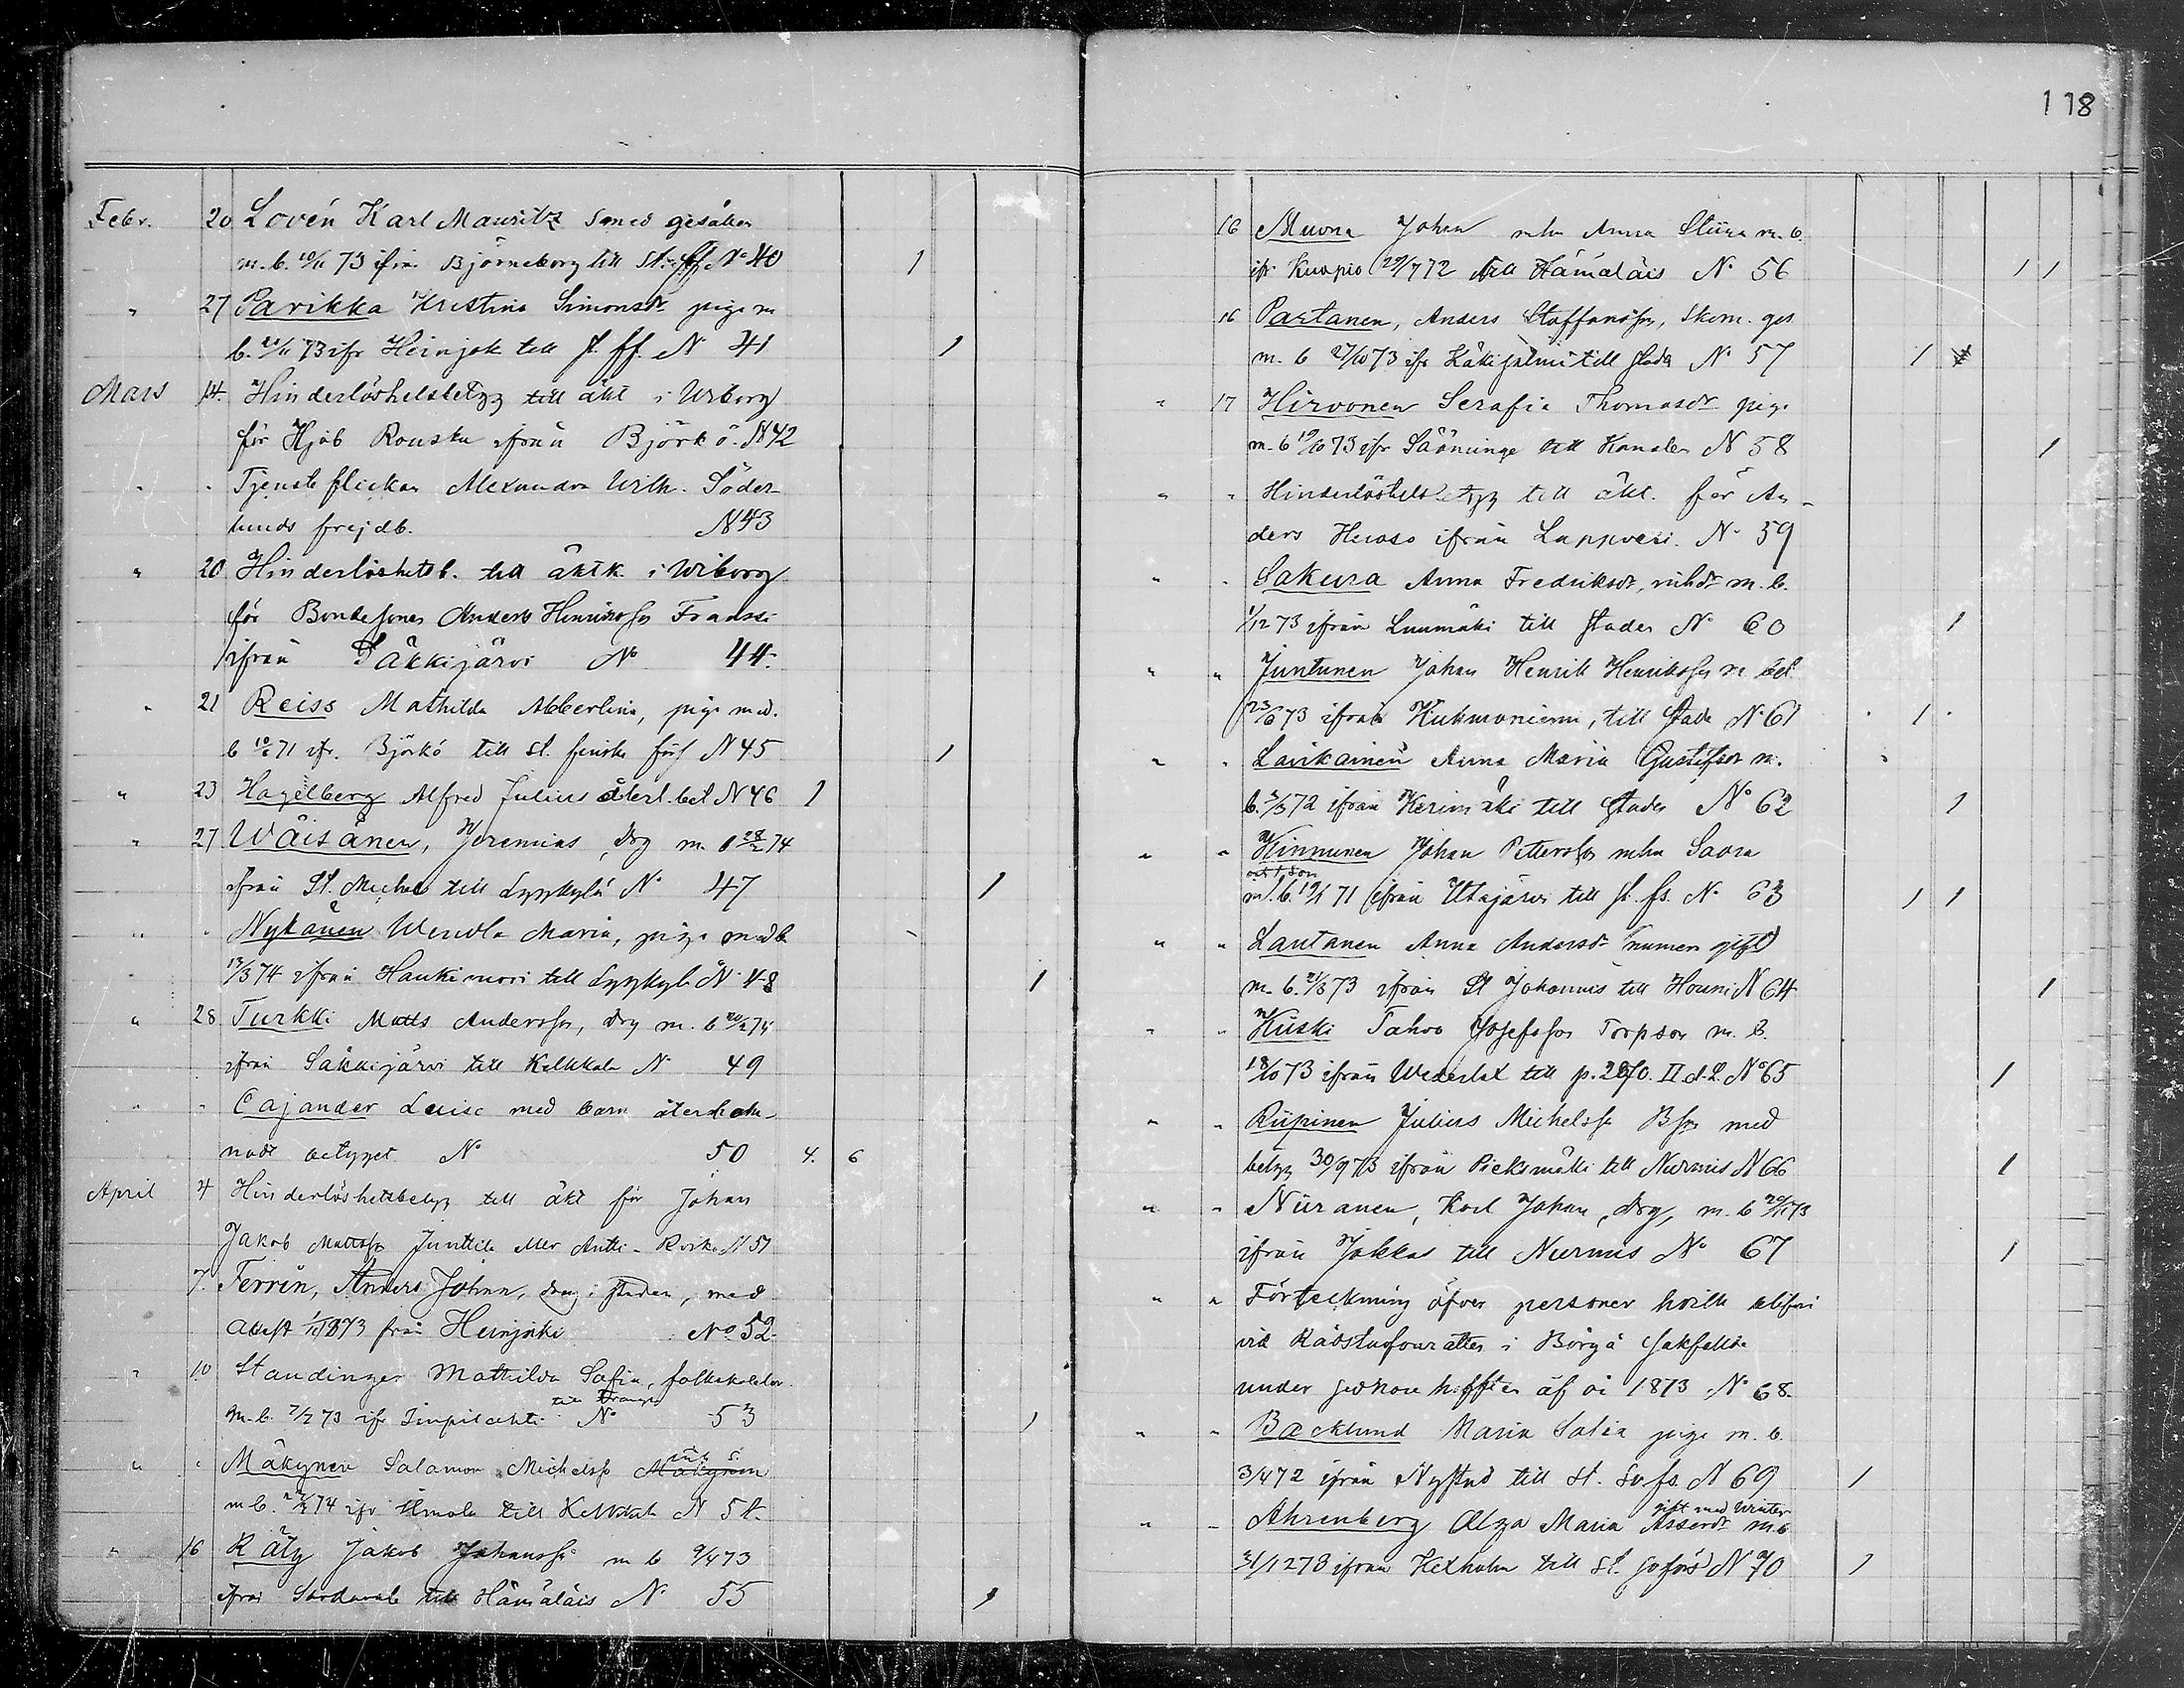 118
Febr. 20 Lovén Karl Mauritz Smed gesällen
m. b. 10/11 73 ifrn. Björneborg till St. ff. No 40 1
" 27 Parikka Kristina Simonsdr piga m
b. 21/11 73 ifr Heinjok till st. ff. N 41 1
Mars 14. Hinderlöshetsbetyg till äkt i Wiborg
för Hjob Rouska ifrån Björkö. N 42
" " Tjensteflickan Alexandra Wilh. Söder-
lunds frejdb. N 43
" 20 Hinderlöshetsb. till äktk. i Wiborg
för Bondesonen Anders Henriksson Fransi
ifrån Säkkijärvi No 44.
" 21 Reiss Mathilda Albertina, piga med.
b 10/6 71 ifr. Björkö till st. finska förs N 45 1
" 23 Hagelberg Alfred Julius återl. bet N 46 1
" 27 Wäisänen, Jeremias, drg m. b 28/2 74
ifrån St. Michel till Lyypkylä No 47 1
" " Nykänen Wendla Maria, piga med b
13/3 74 ifrån Haukivuori till Lyypkylä N 48 1
" 28 Turkki Matts Andersson, drg m. b 20/2 74
ifrån Säkkijärvi till Kelkkala N 49
" " Cajander Luise med barn återläm-
nadt betyget No 50 4. 6
April 4 Hinderlöshetsbetyg till äkt för Johan
Jakob Mattsson Junttila eller Antti- N 51
7. Ferrin, Anders Johan, drng i staden, med
attest 1/11 1873 från Heinjoki No 52.
" 10 Standinger Mathilda Sofia, folkskolelär.
m. b. 7/7 73 ifr Impilahti till No 53 1
" " Mäkynen Salamon Michelss Mäkynen
m b. 74 ifr till Kelkkala N 54.
" 16 Räty Jakob Johansson m b 9/4 73
ifrån Sordavala till Hämäläis N 55 1
16 Muona Johan mhu Anna Stiina m. b.
ifr. Kuopio 29/7 72 till Hämäläis No 56 1 1
16 Partanen, Anders Staffansson, Skom. ges
m. b 27/10 73 ifr Räkisalmi till staden No 57 1
" 17 Hirvonen Serafia Thomasdr piga
m. b 19/10 73 ifr Sääminge till Kansalen N 58 1
" " Hinderlöshetsbetyg till äkt. för An-
ders Huoso ifrån Lappvesi. No 59
" " Sakura Anna Fredriksdr, m. b.
1/12 73 ifrån Luumäki till staden No 60 1
" " Juntunen Johan Henrik Henriksson m bet.
23/6 73 ifrån Kuhmoniemi, till stade No 61 1
" " Lavikainen Anna Maria Gustafsdr m.
b. 3/3 72 ifrån Kerimäki till staden No 62 1
" " Kinnunen Johan Pettersson mhu Saara
och 1 son
m. b. 19/1 71 ifrån Utajärvi till st. fs. No 63 1 1
" " Lautanen Anna Andersdr numera gift
m. b. 21/3 73 ifrån St Johannis till Houni N 64 1
" " Kiiski Tahvo Josefsson Torpson m. b.
18/10 73 ifrån Wederlax till p. 2870. II d. L. No 65 1
" " Riipinen Julius Michelsson Bson med
betyg 30/9 73 ifrån Pieksmäki till Nurmis N 66 1
" " Niiranen, Karl Johan, drg, m. b 20/11 73
ifrån Jokkas till Nurmis No 67 1
" " Förteckning öfver personer hvilka blifvit
vid Rådstufvurätten i Borgå sakfällda
under sednare hälften af år 1873 No 68.
" " Backlund Maria Sofia piga m. b.
3/4 72 ifrån Nystad till st. Sv fs. N 69 1
gift med Winter
" " Ahrenberg Olga Maria Assersdr m. b
31/12 73 ifrån Kexholm till st. N 70 1